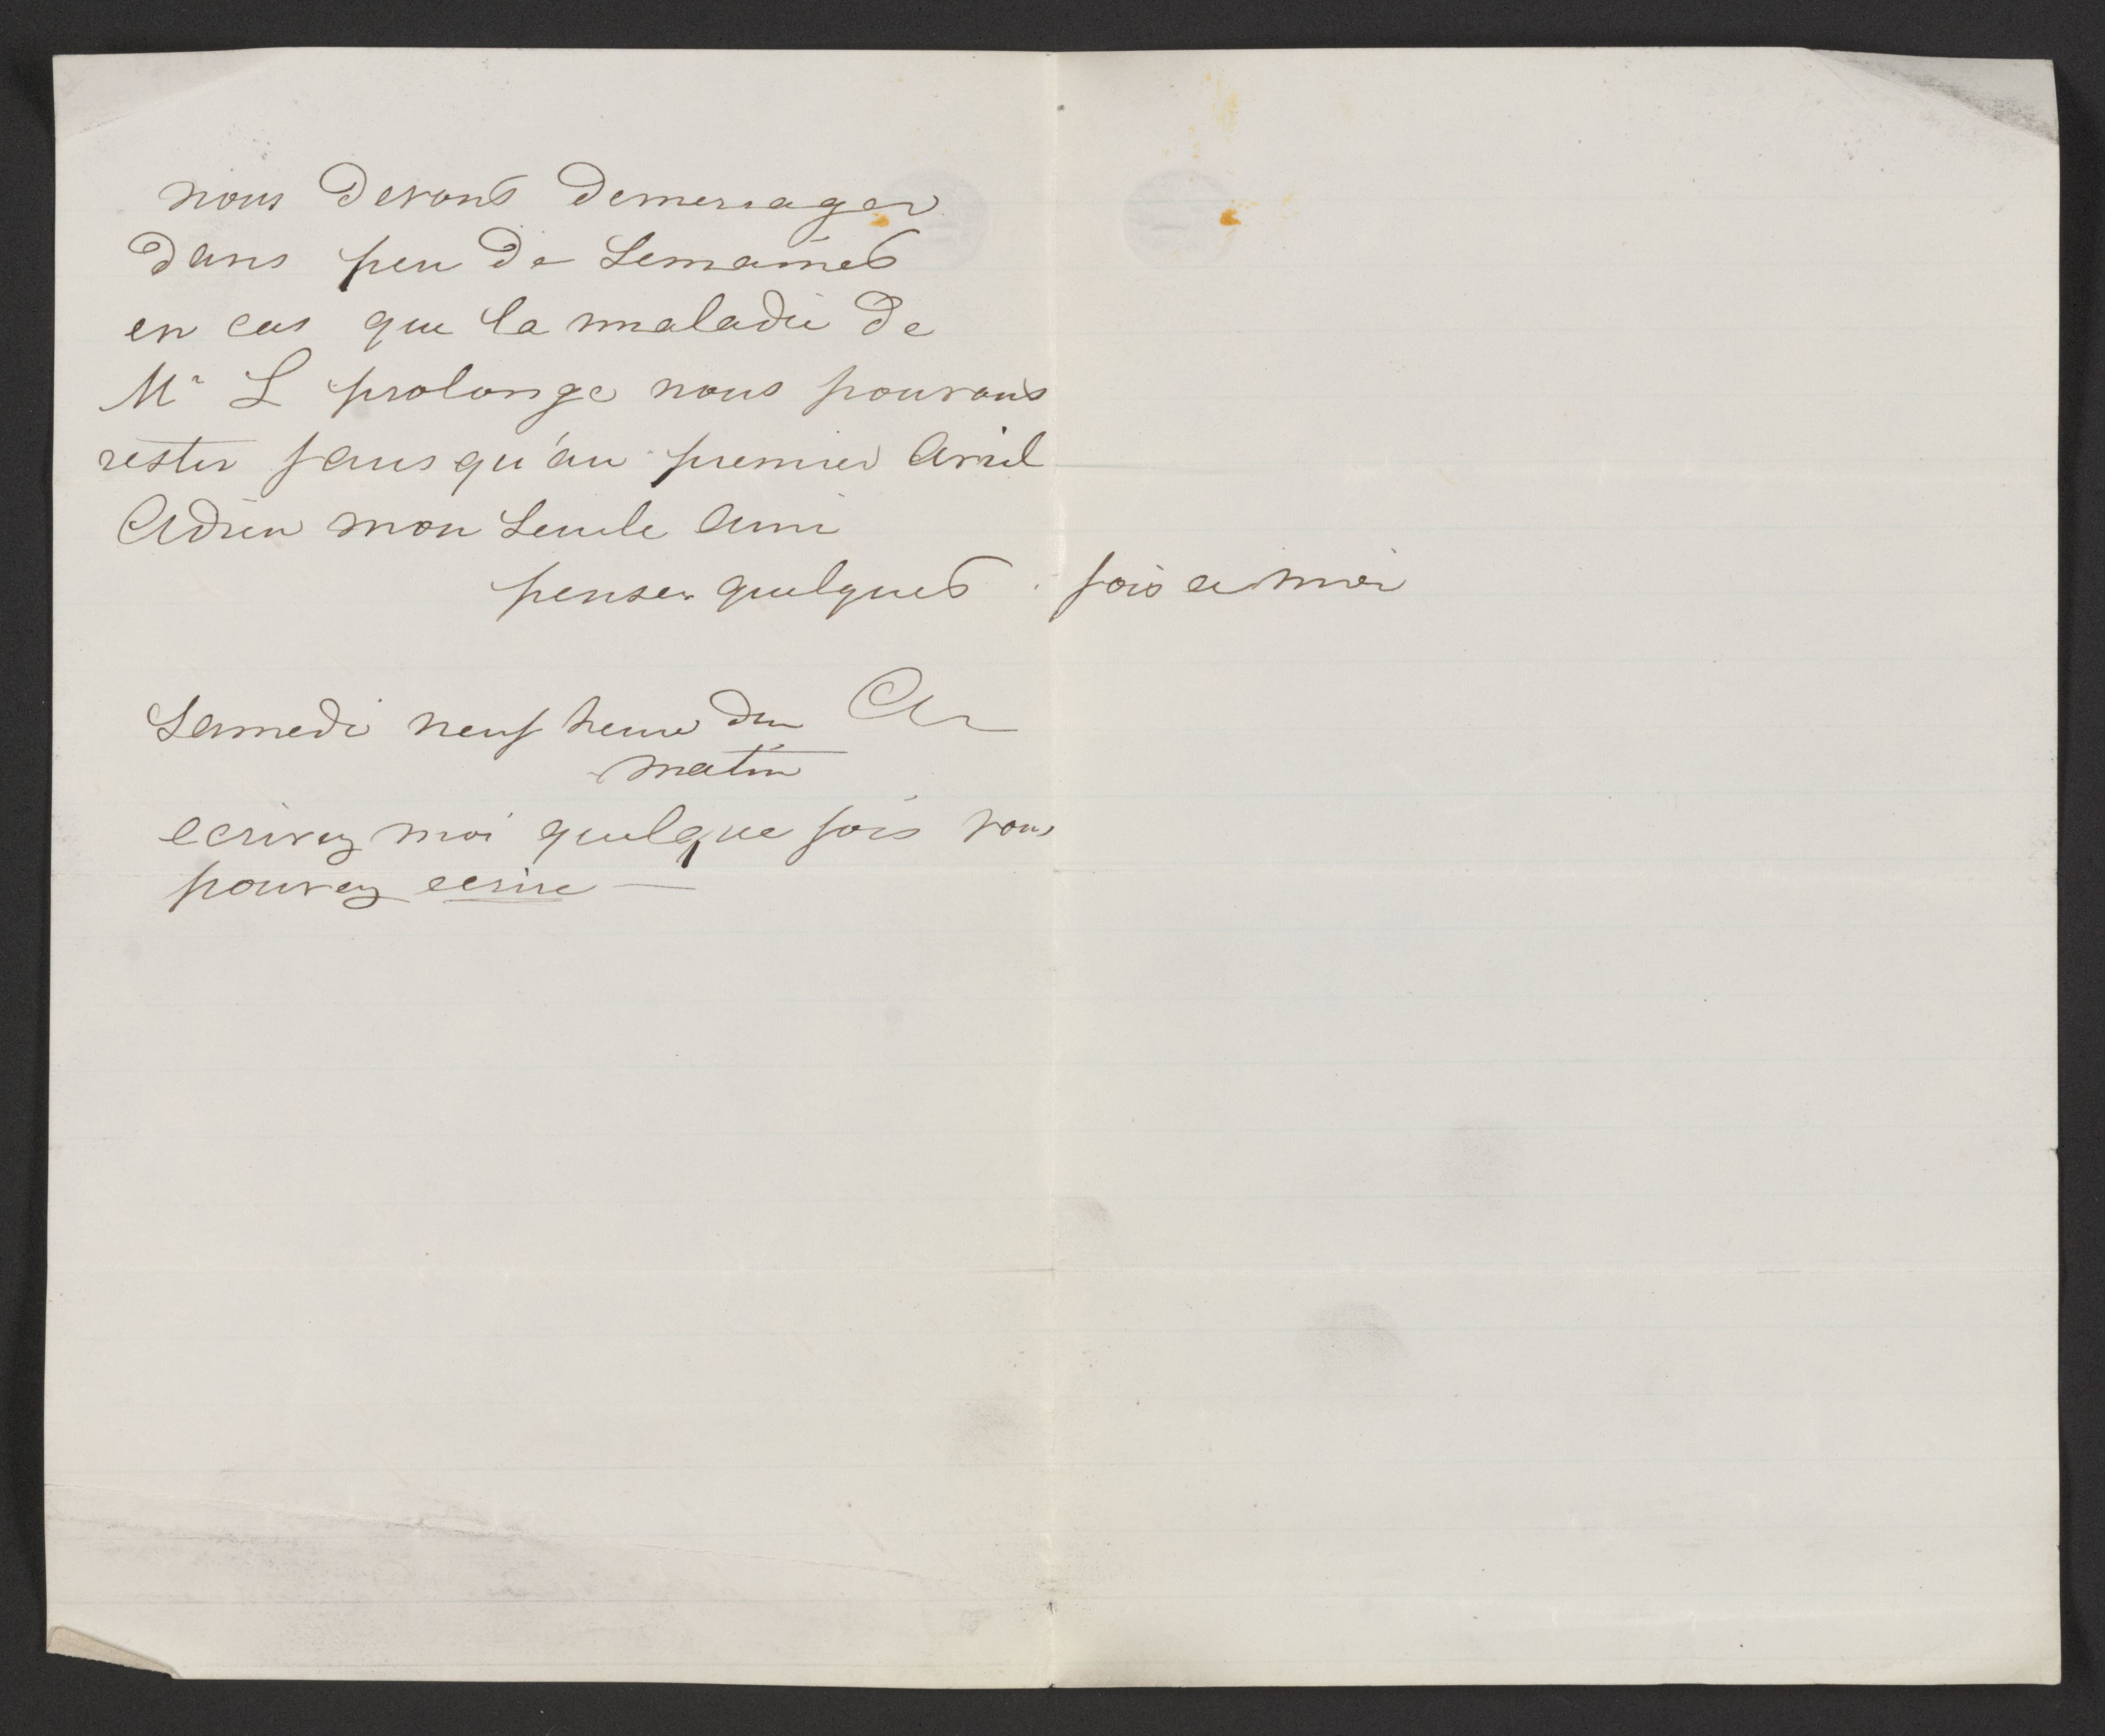 nous devons demenager
dans peu de Semaines
en cas que la maladie de
Mr L prolonge nous pouvons
rester jausqu'au premier Avril
Adieu mon Seule Ami
penser quelques fois a moi
Samedi neuf heure du
matin
ecrivez moi quelque fois vous
pouvez ecrire —